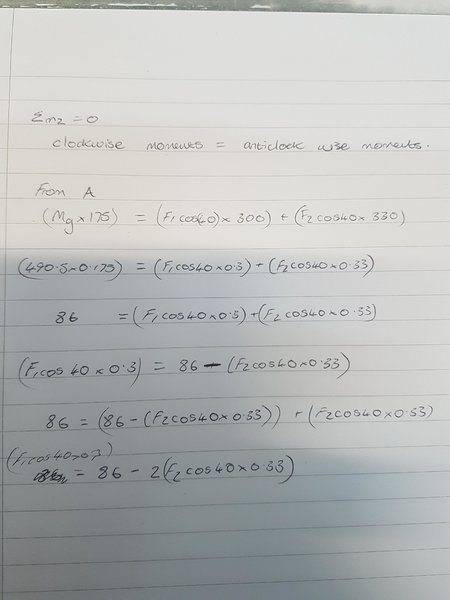 Σmz = 0
clockwise moments = anticlock wise moments.
From A
(Mg × 175) = (F₁ cos(40) × 300) + (F₂ cos40 × 330)
(490.5 × 0.175) = (F₁ cos40 × 0.3) + (F₂ cos40 × 0.33)
86 = (F₁ cos40 × 0.3) + (F₂ cos40 × 0.33)
(F₁ cos 40 × 0.3) = 86 - (F₂ cos40 × 0.33)
86 = (86 - (F₂ cos40 × 0.33)) + (F₂ cos40 × 0.33)
(F₁ cos40
= 86 - 2(F₂ cos40 × 0.33)